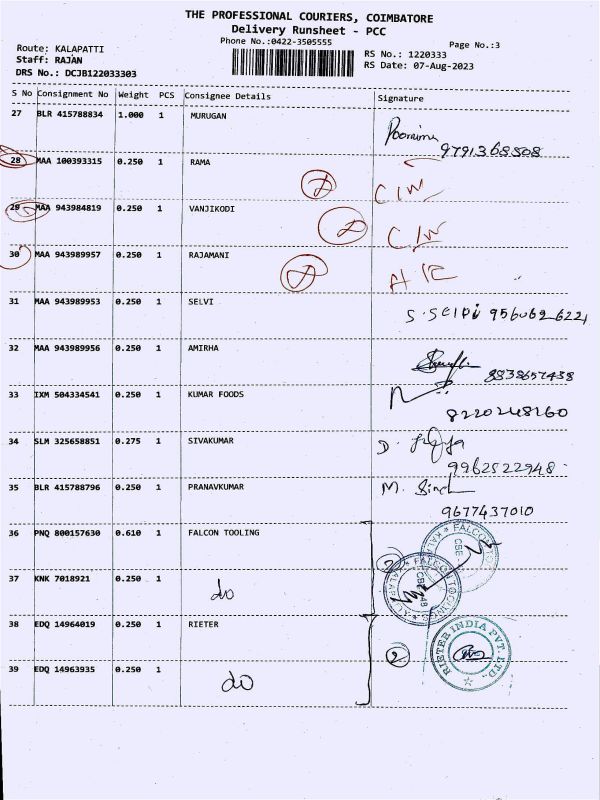 THE PROFESSIONAL COURIERS, COIMBATORE
Delivery Runsheet - PCC
Phone No.:0422-3505555
Page No.:3
Route: KALAPATTI
RS No.: 1220333
Staff: RAJAN
RS Date: 07-Aug-2023
DRS No.: DCJB122033303
S No Consignment No Weight PCS Consignee Details Signature
27 BLR 415788834 1.000 1 MURUGAN
Poornima
9791368508
28 MAA 100393315 0.250 1 RAMA
C/W
29 MAA 943984819 0.250 1 VANJIKODI
C/W
30 MAA 943989957 0.250 1 RAJAMANI
31 MAA 943989953 0.250 1 SELVI
32 MAA 943989956 0.250 1 AMIRHA
8838657438
33 IXM 504334541 0.250 1 KUMAR FOODS
8220248260
34 SLM 325658851 0.275 1 SIVAKUMAR
9962522948
35 BLR 415788796 0.250 1 PRANAVKUMAR
9677437010
36 PNQ 800157630 0.610 1 FALCON TOOLING
FALCON
37 KNK 7018921 0.250 1 do
FALCON TOOLINGS
38 EDQ 14964019 0.250 1 RIETER
2
RIETER INDIA PVT. LTD.,
39 EDQ 14963935 0.250 1 do